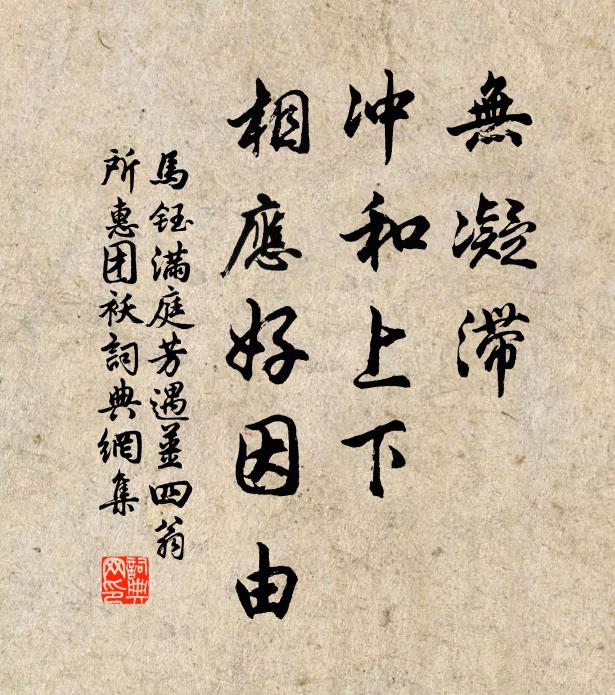 無凝滯
冲和上下
相應好因由
馬鈺滿庭芳遇姜四翁
所惠团袄詞典網集
詞典網印